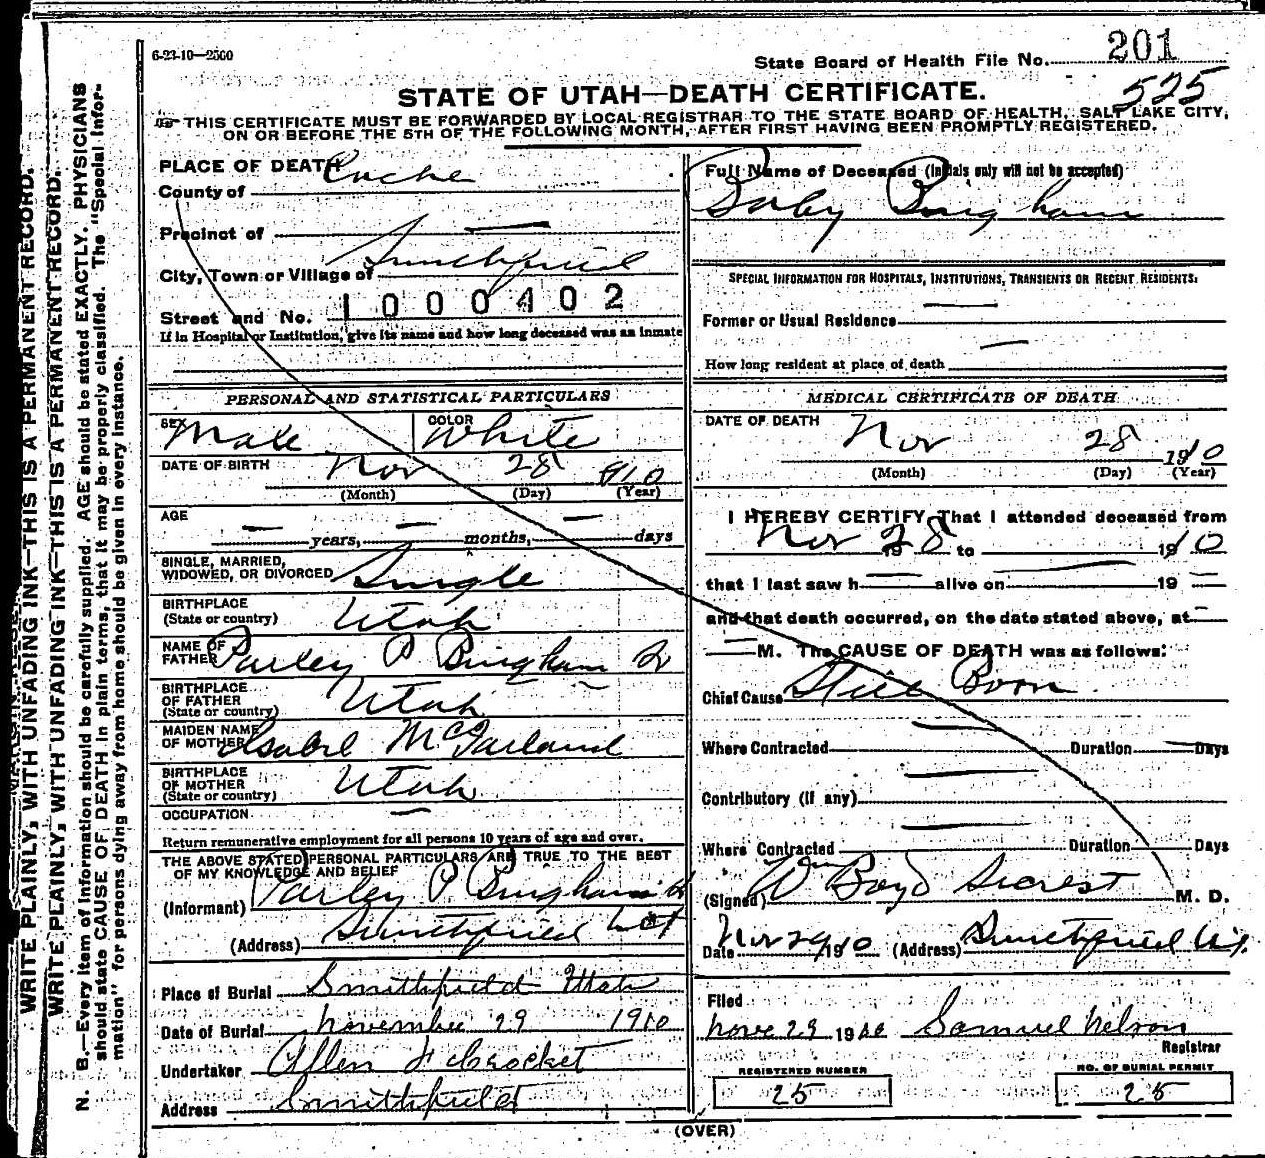 6-23-10—2500
State Board of Health File No. 201
525
STATE OF UTAH—DEATH CERTIFICATE.
THIS CERTIFICATE MUST BE FORWARDED BY LOCAL REGISTRAR TO THE STATE BOARD OF HEALTH, SALT LAKE CITY,
ON OR BEFORE THE 5TH OF THE FOLLOWING MONTH, AFTER FIRST HAVING BEEN PROMPTLY REGISTERED.
WRITE PLAINLY, WITH UNFADING INK—THIS IS A PERMANENT RECORD.
WRITE PLAINLY, WITH UNFADING INK—THIS IS A PERMANENT RECORD.
N. B.—Every item of information should be carefully supplied. AGE should be stated EXACTLY. PHYSICIANS
should state CAUSE OF DEATH in plain terms, that it may be properly classified. The "Special Infor-
mation" for persons dying away from home should be given in every instance.
PLACE OF DEATH
County of Cache
Precinct of —
City, Town or Village of Smithfield
Street and No. 1000402
If in Hospital or Institution, give its name and how long deceased was an inmate
PERSONAL AND STATISTICAL PARTICULARS
SEX Male COLOR White
DATE OF BIRTH Nov 28 910
(Month) (Day) (Year)
AGE
— years, — months, — days
SINGLE, MARRIED,
WIDOWED, OR DIVORCED Single
BIRTHPLACE
(State or country) Utah
NAME OF
FATHER Parley P Bingham Jr
BIRTHPLACE
OF FATHER
(State or country) Utah
MAIDEN NAME
OF MOTHER Isabel McFarland
BIRTHPLACE
OF MOTHER
(State or country) Utah
OCCUPATION —
Return remunerative employment for all persons 10 years of age and over.
THE ABOVE STATED PERSONAL PARTICULARS ARE TRUE TO THE BEST
OF MY KNOWLEDGE AND BELIEF
(Informant) Parley P Bingham Jr
(Address) Smithfield Ut
Place of Burial Smithfield Utah
Date of Burial November 29 1910
Undertaker Allen
Address Smithfield
Full Name of Deceased (Initials only will not be accepted)
Baby Bingham
SPECIAL INFORMATION FOR HOSPITALS, INSTITUTIONS, TRANSIENTS OR RECENT RESIDENTS:
Former or Usual Residence —
How long resident at place of death —
MEDICAL CERTIFICATE OF DEATH
DATE OF DEATH Nov 28 1910
(Month) (Day) (Year)
I HEREBY CERTIFY, That I attended deceased from
Nov 28 19 to — 1910
that I last saw h — alive on — 19 —
and that death occurred, on the date stated above, at —
— M. The CAUSE OF DEATH was as follows:
Chief Cause Still Born
Where Contracted — Duration — Days
Contributory (if any) —
Where Contracted — Duration Days
(Signed) Wm Boyd Secrest M. D.
Date Nov 29 1910 (Address) Smithfield Ut.
Filed
Nove 29 1910 Samuel Nelson
Registrar
REGISTERED NUMBER
25
NO. OF BURIAL PERMIT
25
(OVER)